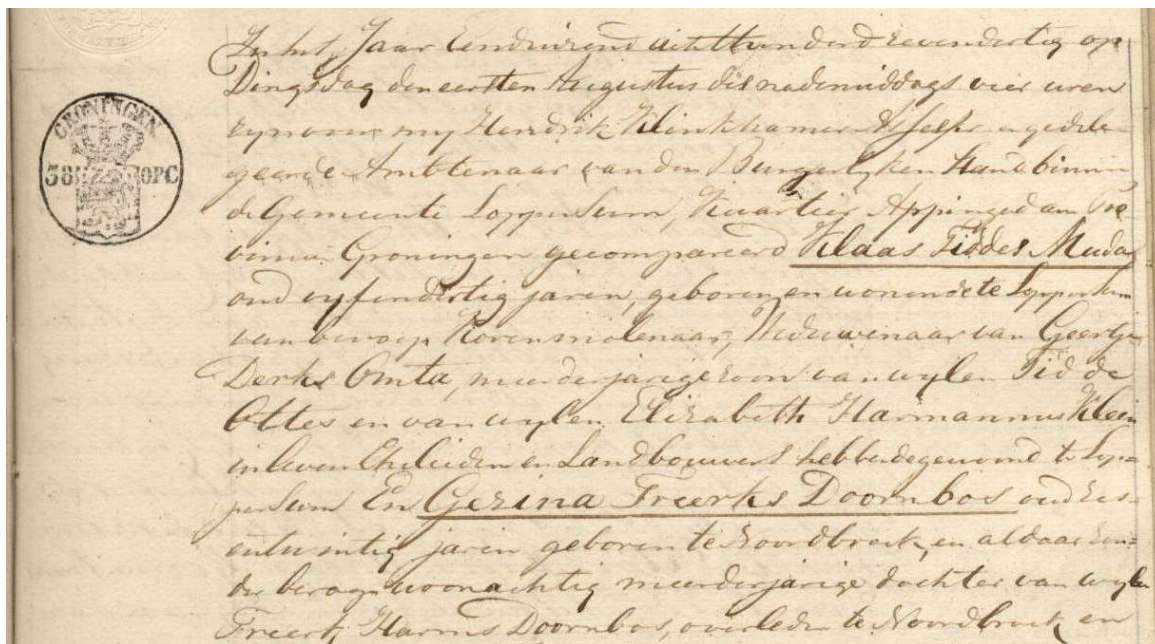 GRONINGEN
38 OPC
In het Jaar Eenduizend achtthonderd zevendertig op
Dingsdag den eersten Augustus des nademiddags vier uren
zyn voor my Hendrik Klinkhamer Assessor en gedele-
geerde Ambtenaar van den Burgerlyken Stand binnen
de Gemeente Loppersum, Kwartier Appingedam Pro
vincie Groningen gecompareerd Klaas Fiddes Muda
oud vyfendertig jaren, geboren en wonende te Loppersum
van beroep Korenmolenaar, Weduwenaar van Geertje
Derks Omta, meerderjarige zoon van wylen Fidde
Ottes en van wylen Elizabeth Harmannus Klein
in leven Ehelieden en Landbouwers hebbende gewoond te Lop-
persum En Gezina Freerks Doornbos oud zes-
entwintig jaren geboren te Noordbroek, en aldaar zon-
der beroep woonachtig meerderjarige dochter van wylen
Freerk Harms Doornbos, overleden te Noordbroek en